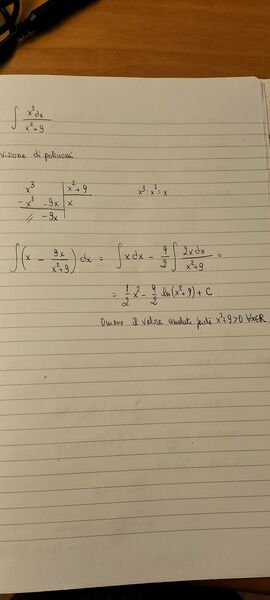 ∫ x³dx / x²+9
visione di polinomi
x³ | x²+9    x³ : x² = x
-x³ -9x | x
// -9x
∫ (x - 9x/x²+9) dx = ∫ x dx - 9/2 ∫ 2x dx / x²+9 =
= 1/2 x² - 9/2 ln(x²+9) + C
il valore assoluto perché x²+9>0 ∀x∈R